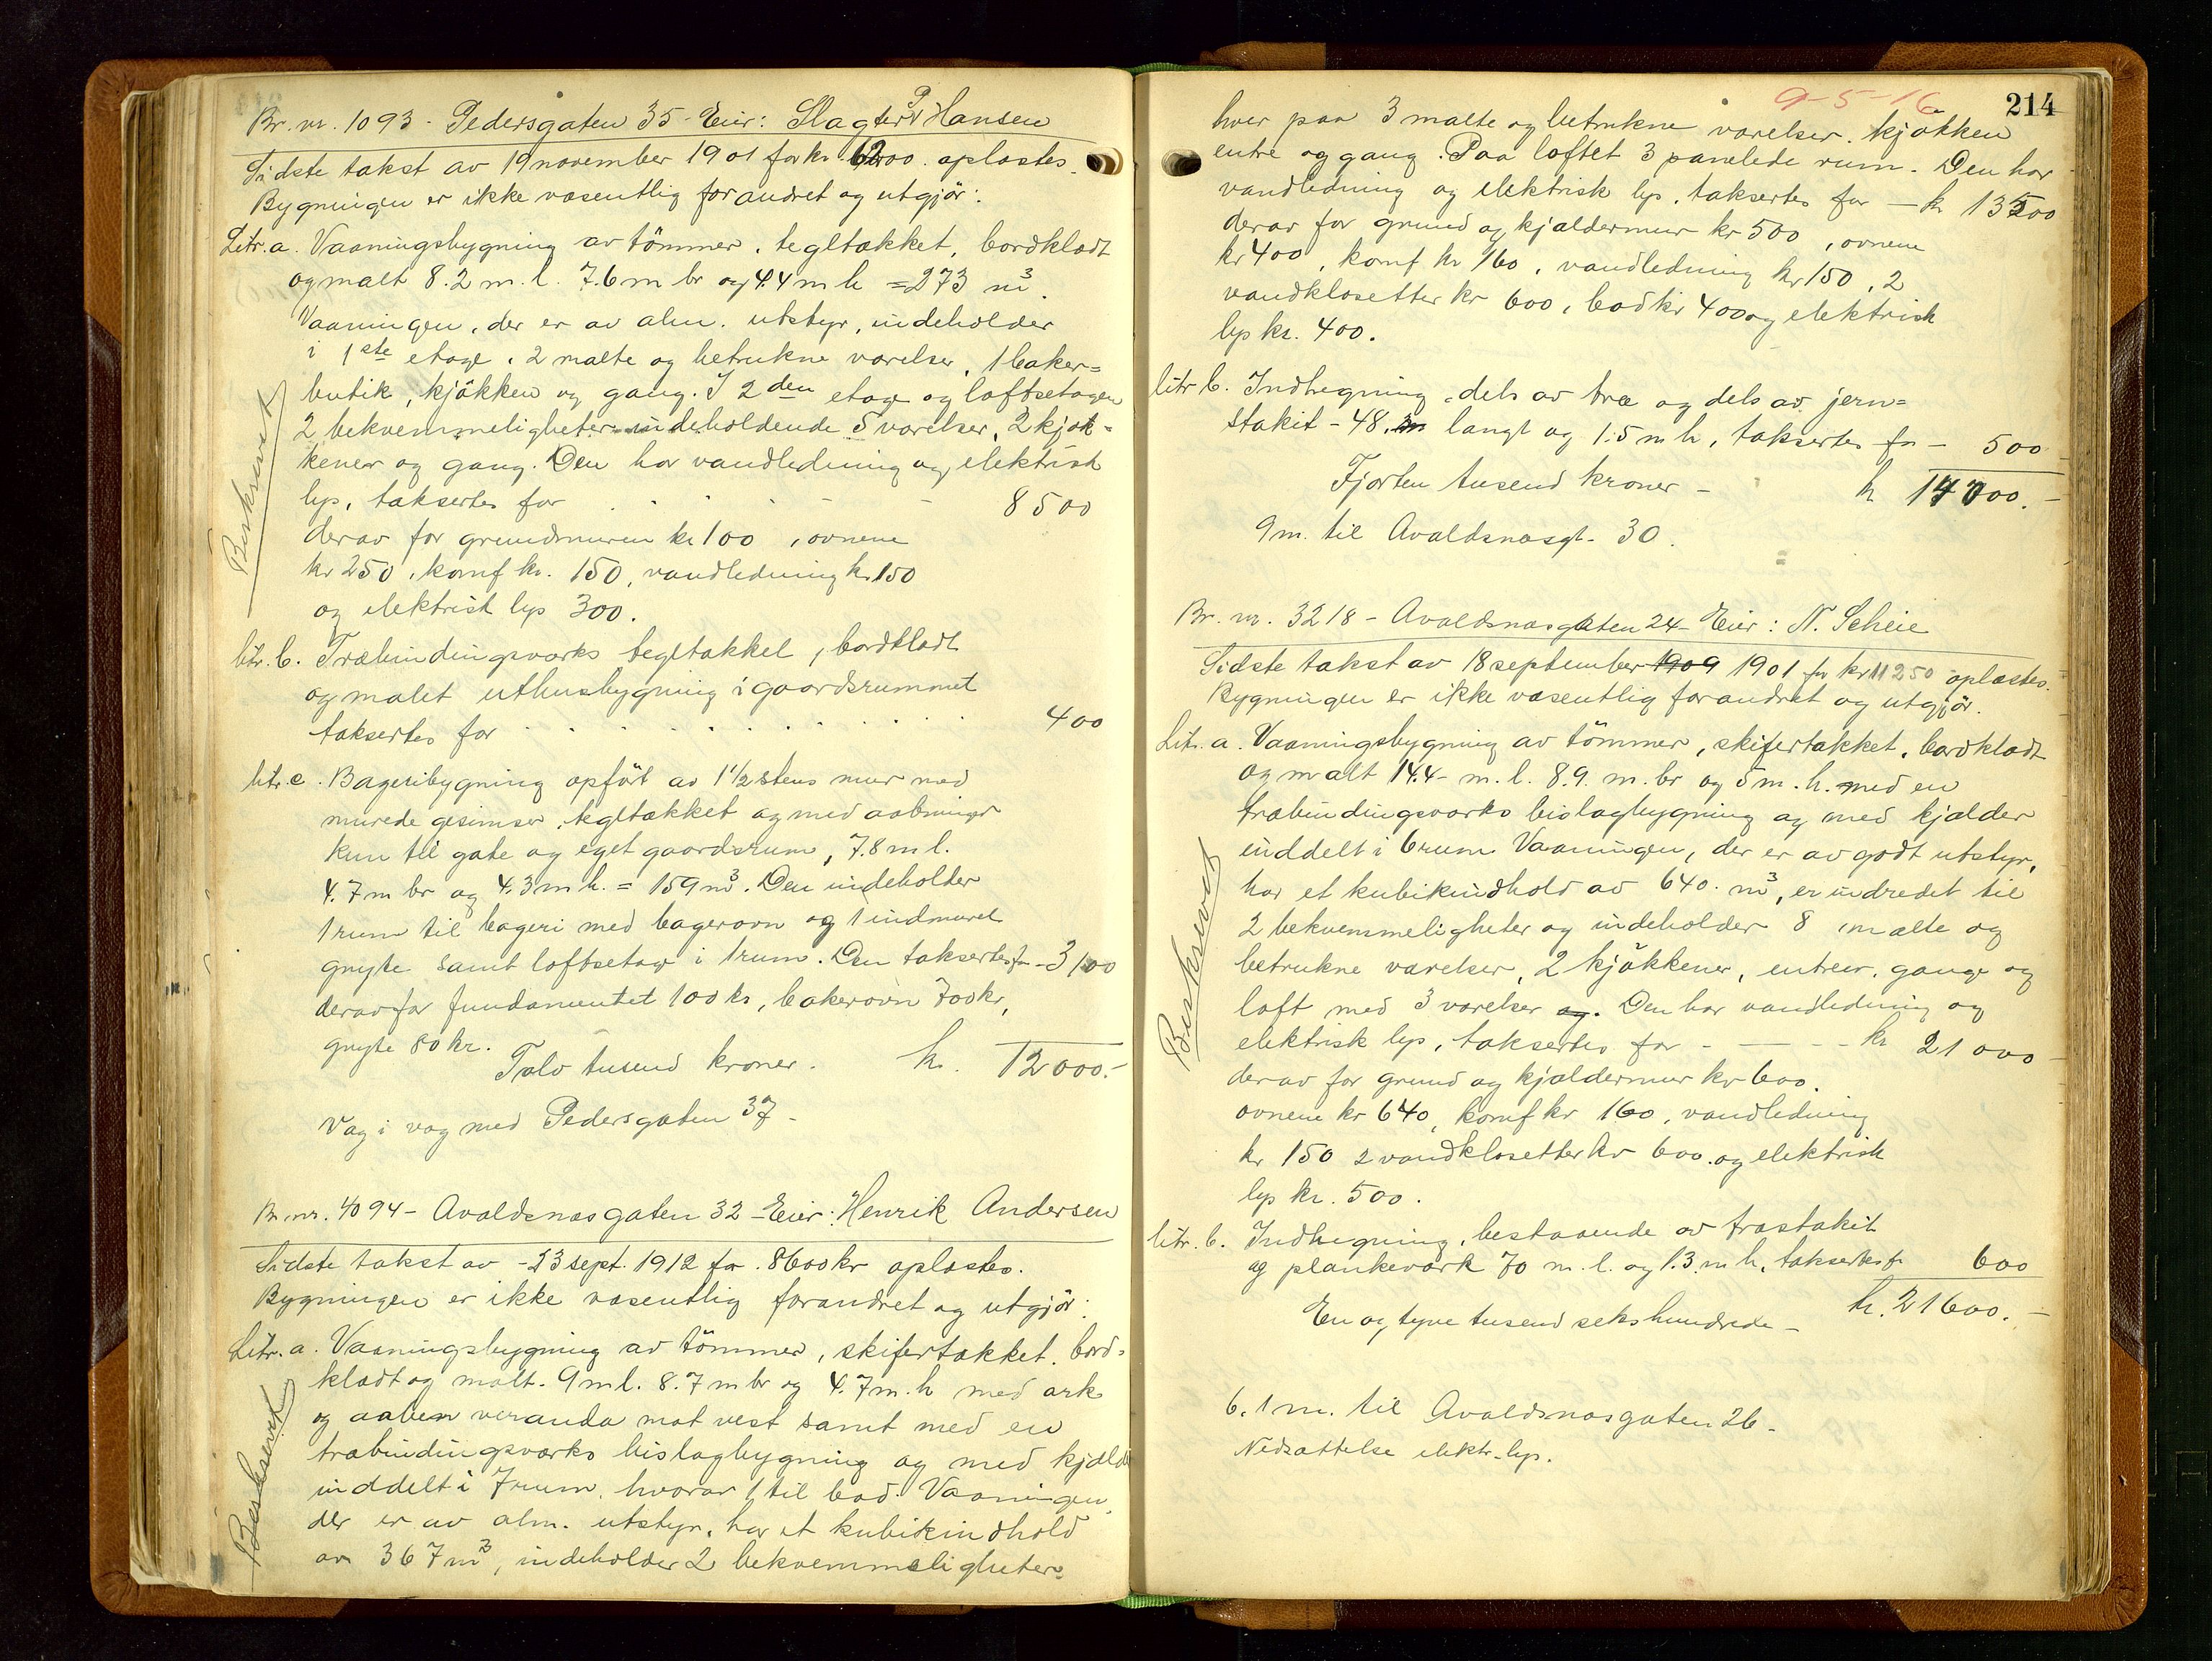 Br. nr. 1093 - Pedersgaten 35 - Eier: Slagter P. Hansen
Sidste takst av 19 november 1901 for kr. oplæstes.
Bygningen er ikke væsentlig forandret og utgjør:
Litr. a. Vaaningsbygning av tömmer, tegltækket, bordklædt
og malt 8.2 m. l. 7.6 m br og 4.4 m h = 273 m³.
Vaaningen, der er av alm. utstyr, indeholder
i 1ste etage, 2 malte og betrukne værelser, 1 baker=
butik, kjökken og gang. I 2den etage og loftsetagen
2 bekvemmeligheter indeholdende 5 værelser, 2 kjøk=
kener og gang. Den har vandledning og elektrisk
lys, takseres for 8500
derav for grundmuren kr 100, ovnene
kr 250, komf kr. 150, vandledning kr 150
og elektrisk lys 300.
Beskrevet
litr. b. Træbindingsværks tegltækket, bordklædt
og malet uthusbygning i gaardsrummet
taksertes for 400
litr. c. Bageribygning opført av 1 1/2 stens mur med
murede gesimser, tegltækket og med aabninger
kun til gate og eget gaardsrum, 7.8 m l.
4.7 m br og 4.3 m h. = 159 m³. Den indeholder
1 rum til bageri med bagerovn og 1 indmuret
gryte samt loftsetage i 1 rum. Den taksertes for - 3100
derav for fundamentet 100 kr, bakerovn 700 kr,
gryte 80 kr.
Tolv tusend kroner. kr. 12000.-
Væg i væg med Pedersgaten 37 -
Br. nr. 4094 - Avaldsnæsgaten 32 - Eier: Henrik Andersen
Sidste takst av - 23 sept. 1912 for 8600 kr oplæstes.
Bygningen er ikke væsentlig forandret og utgjör:
Litr. a. Vaaningsbygning av tömmer, skifertækket, bord=
klædt og malt. 9 m l. 8.7 m br og 4.7 m. h med ark
og aaben veranda mot vest samt med en
træbindingsværks bislagbygning og med kjælder
inddelt i 7 rum, hvorav 1 til bad. Vaaningen,
der er av alm. utstyr, har et kubikindhold
av 367 m³, indeholder 2 bekvemmeligheter
Beskrevet
9-5-16
214
hver paa 3 malte og betrukne værelser, kjøkken
entre og gang. Paa loftet 3 panelede rum. Den har
vandledning og elektrisk lys, taksertes for - kr 13500
derav for grund og kjældermur kr 500, ovnene
kr 400, komf kr 160, vandledning kr 150, 2
vandklosetter kr 600, bad kr 400 og elektrisk
lys kr. 400.
litr b. Indhegning, dels av træ og dels av jern=
stakit - 48 m langt og 1.5 m h, taksertes for - 500
Fjorten tusend kroner - kr 14000.-
9 m. til Avaldsnæsgt. 30.
Br. nr. 3218 - Avaldsnæsgaten 24 - Eier: N. Scheie
Sidste takst av 18 september 1909 1901 for kr 11250 oplæstes.
Bygningen er ikke væsentlig forandret og utgjör.
Litr. a. Vaaningsbygning av tömmer, skifertækket, bordklædt
og malt 14.4 m. l. 8.9. m. br og 5 m. h. med en
træbindingsværks bislagbygning og med kjælder
inddelt i 6 rum. Vaaningen, der er av godt utstyr,
har et kubikindhold av 640. m³, er indredet til
2 bekvemmeligheter og indeholder 8 malte og
betrukne værelser, 2 kjökkener, entreer, gange og
loft med 3 værelser og. Den har vandledning og
elektrisk lys, taksertes for - kr 21000
derav for grund og kjældermur kr 600.
ovnene kr 640, komf kr 160, vandledning
kr 150 2 vandklosetter kr 600. og elektrisk
lys kr. 500.
Beskrevet
litr. b. Indhegning, bestaaende av træstakit
og plankeværk 70 m. l. og 1.3. m h, taksertes for 600
En og tyve tusend sekshundrede - kr. 21600.-
6.1 m. til Avaldsnæsgaten 26 -
Nedsættelse elektr. lys.